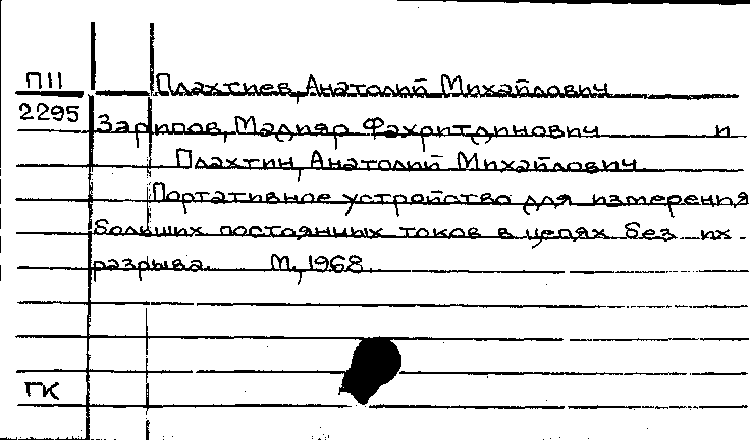 П11 Плахтиев, Анатолий Михайлович
2295 Зарипов, Мадияр Фахритдинович и
Плахтин, Анатолий Михайлович
Портативное устройство для измерения
больших постоянных токов в цепях без их
разрыва. М., 1968.
ГК